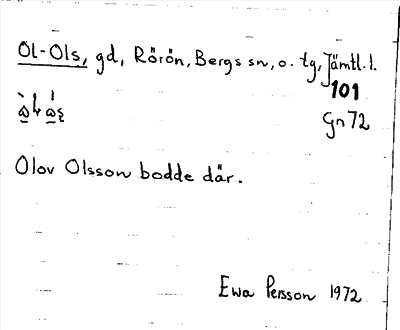 Ol-Ols, gd, Rörön, Bergs sn, o. tg, Jämtl. l.
101
Gn 72
Olov Olsson bodde där.
Ewa Persson 1972